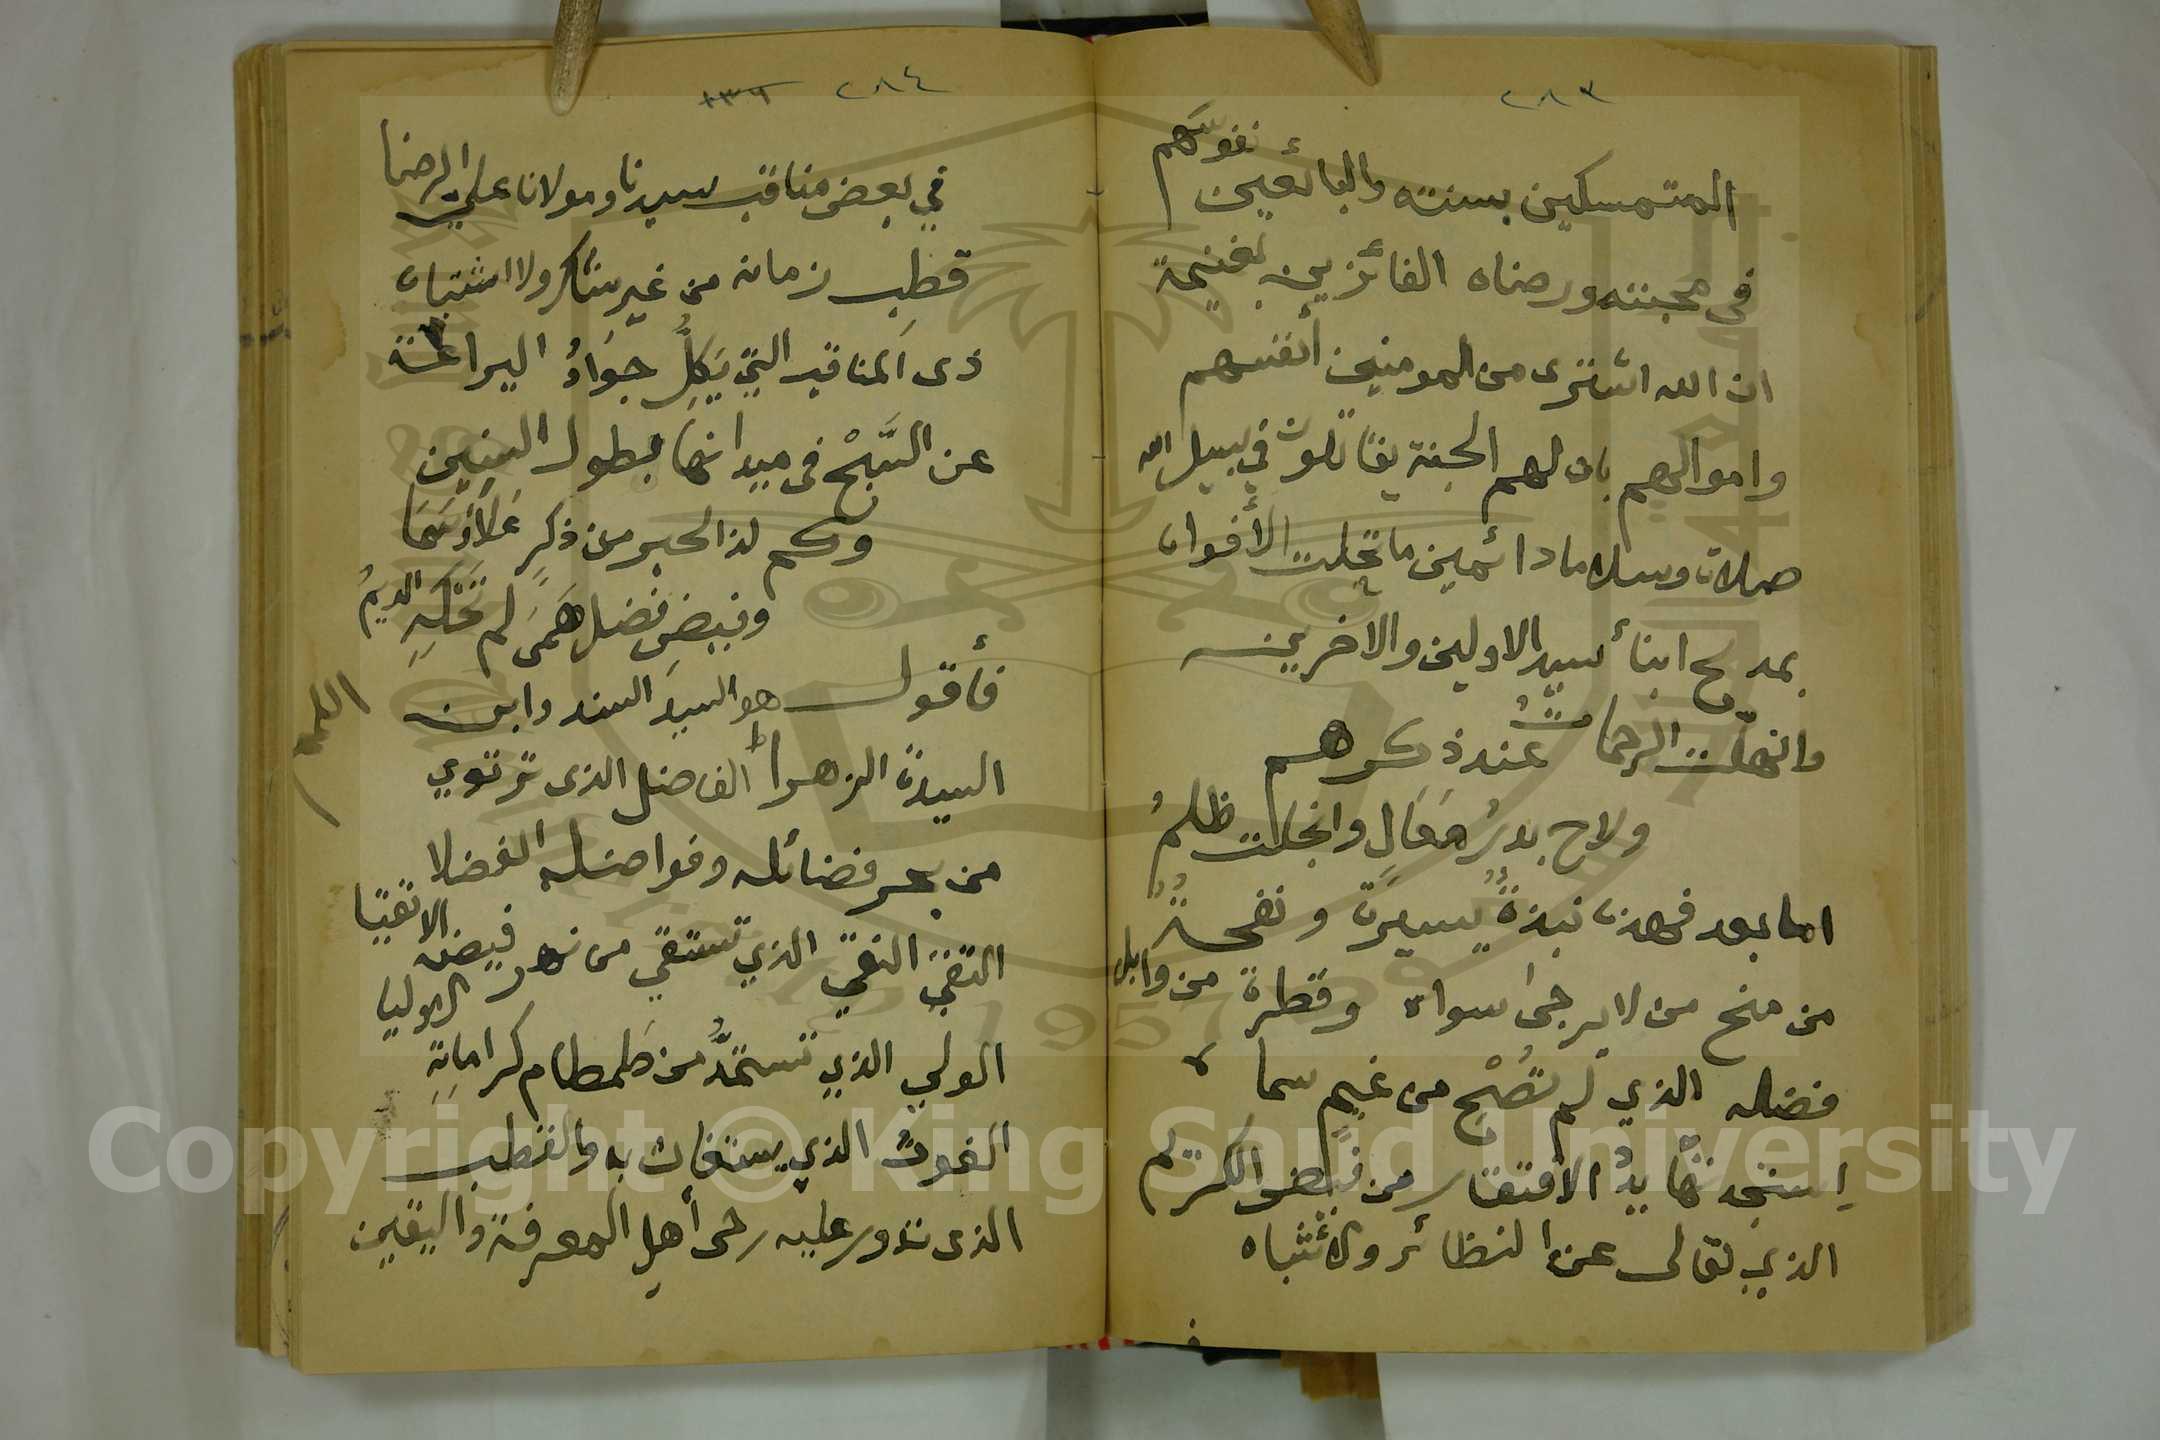 ٢٨٣
المتمسكين بسنته والبائعين نفوسهم
فى محبته ورضاه الفائزين بغنيمة
ان الله اشترى من المومنين أنفسهم
واموالهم بان لهم الجنة يقاتلون في سبيل الله
صلاة وسلاما دائمين ما تحلت الأفواه
بمديح ابنأ سيد الاولين والاخرين
وانهلّت الرحمات عند ذكرهم
ولاح بدرُ مَقَالٍ وانجلت ظلمُ
اما بعد فهذه نبذةٌ يسيرة ونفحةٌ
من منح من لا يرجى سواه وقطرة من وابل
فضله الذي لم تُصْحِ من غيم سما
إستجدتها يدُ الافتقار من فيض الكرم
الذي تعالى عن النظائر والأشباه
في
٢٨٤ ١٣٦
في بعض مناقب سيدنا ومولانا علي الرضا
قطبِ زمانه من غير تناكر ولا اشتباه
ذى المناقب التي يَكِلُّ جوَادُ اليراعة
عن السَّبْحِ فى ميدانها بطول السنين
وكم لذا الحبر من ذكرٍ عَلَا وَسَمَا
وفيض فضل هَمَى لم تَحْكِهِ الديمُ
فأقول هو السيدَ السند وابن
السيدة الزهرا الفاضل الذى ترتوي
من بحر فضائله وفواضله الفضلا
التقيّ النقيّ الذي تستقي من نهر فيضه الاتقيا
الولي الذي تستمدُّ من طَمطام كراماتِهِ الاوليا
الغوث الذي يستغاث به والقطب
الذى تدور عليه رحى أهل المعرفة واليقين
Copyright © King Saud University
1957